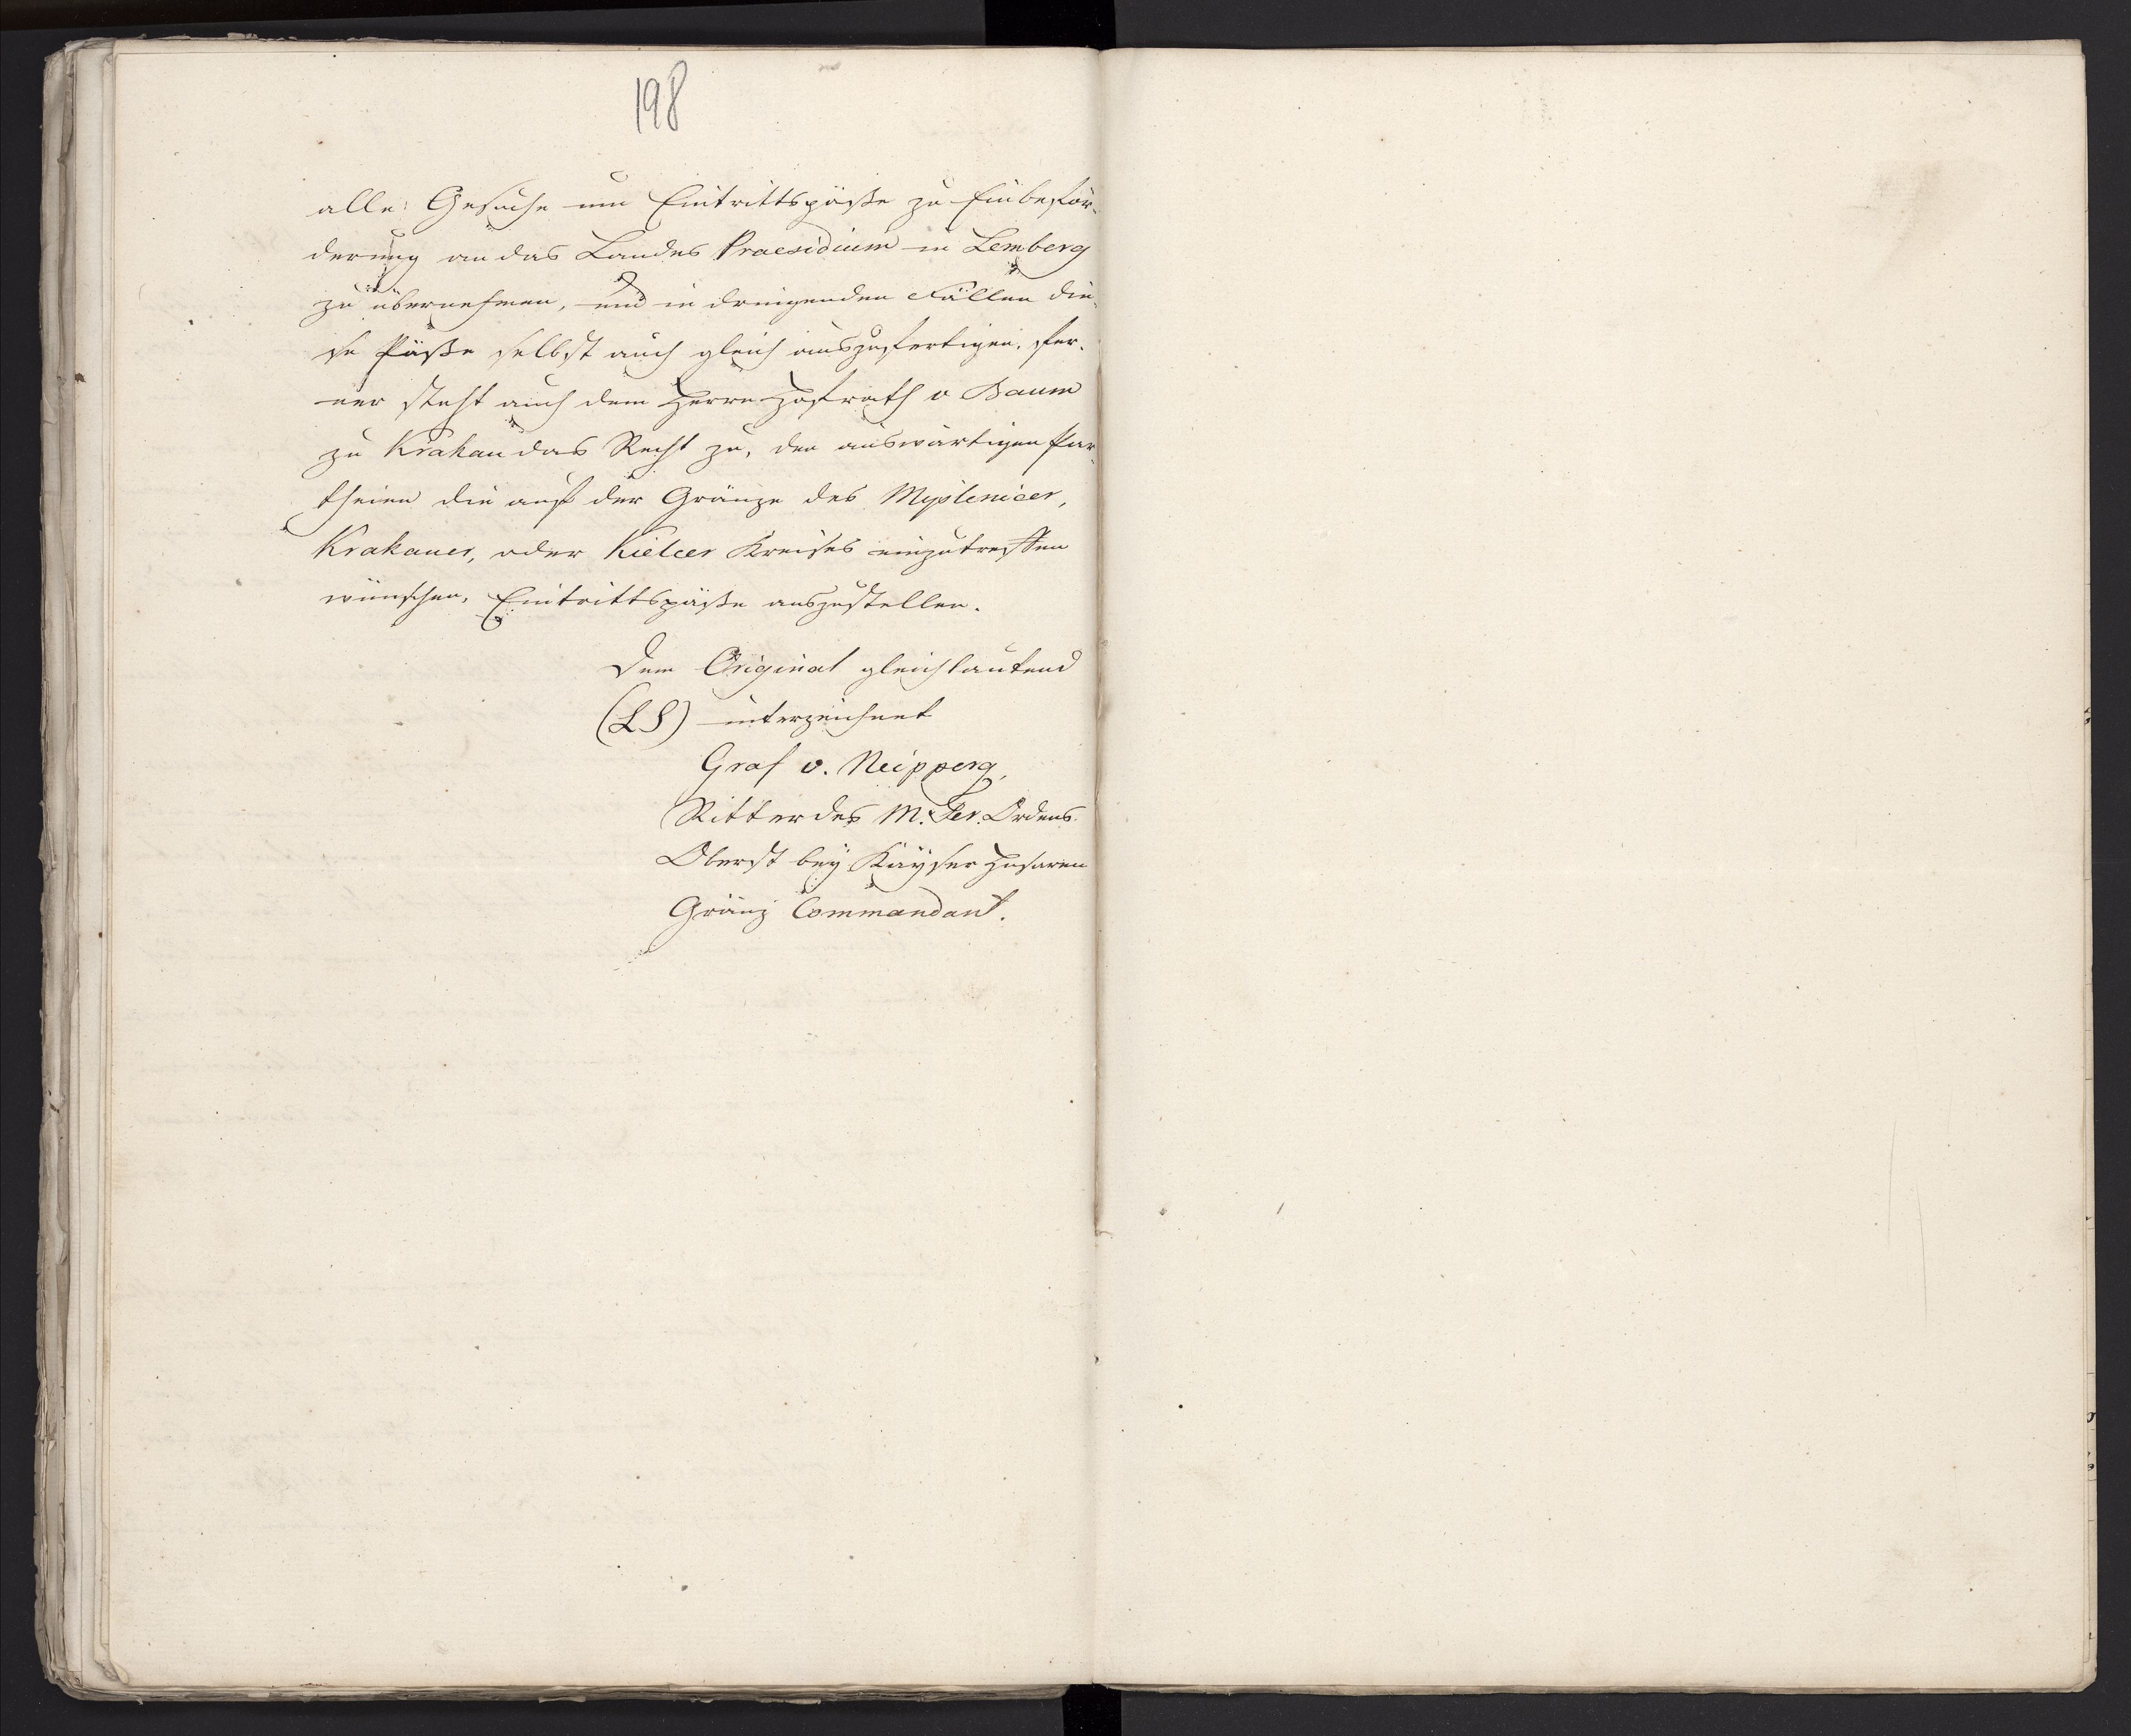 198
alle Gesuche um Eintrittspäße zu Einbeför-
derung an das Landes Praesidium in Lemberg
zu übernehmen, und in dringenden Fällen die-
se Päße selbst auch gleich auszufertigen. Fer-
ner steht auch dem Herrn Hofrath v Baum
zu Krakau das Recht zu, den auswärtigen Par-
theien die auf der Gränze des Myslenicer,
Krakauer, oder Kielcer Kreises einzutreffen
wünschen, Eintrittspäße auszustellen.
Dem Original gleichlautend
(LS) unterzeichnet
Graf v. Neipperg,
Ritter des M. Ter. Ordens
Oberst bey Kayser Husaren
Gränz Commandant.